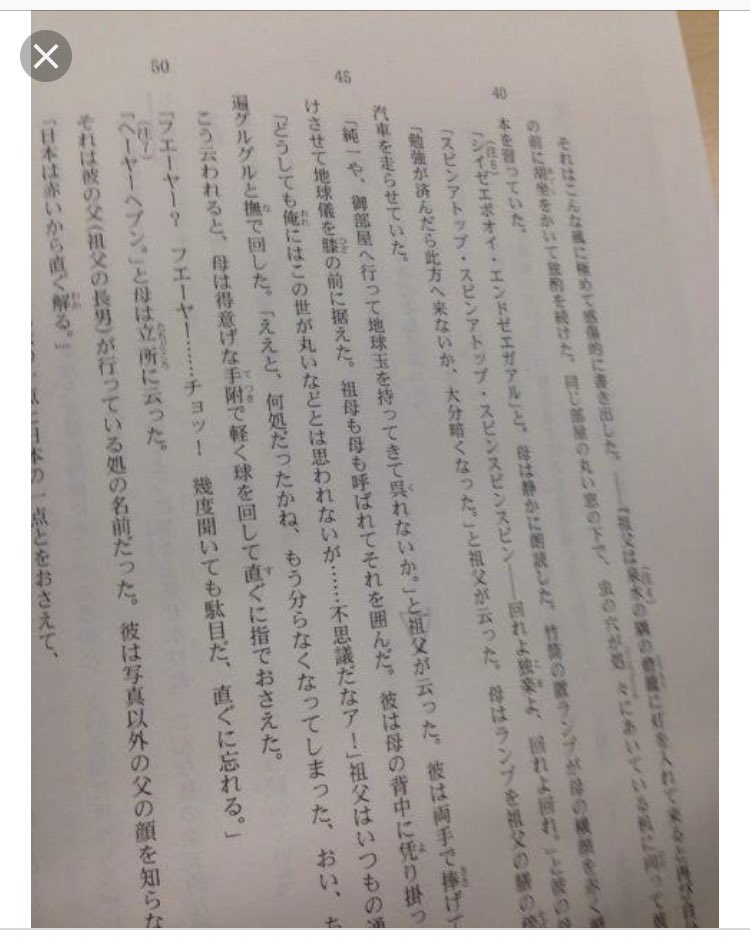 40
45
50
それはこんな風に極めて感傷的に書き出した。――『祖父は泉水の隅の燈籠に灯を入れて来ると再び自
の前に胡坐をかいて独酌を続けた。同じ部屋の丸い窓の下で、虫の穴が処々にあいている机に向って彼
本を習っていた。
(注6)「シイゼエボオイ・エンドゼエガアル」と。母は静かに朗読した。竹筒の置ランプが母の横顔を赤く
「スピンアトップ・スピンアトップ・スピンスピンスピン――回れよ独楽よ、回れよ回れ。」と彼の
「勉強が済んだら此方へ来ないか、大分暗くなった。」と祖父が云った。母はランプを祖父の膳の
汽車を走らせていた。
「純一や、御部屋へ行って地球玉を持ってきて呉れないか。」と祖父が云った。彼は両手で捧げて
けさせて地球儀を膝の前に据えた。祖母も母も呼ばれてそれを囲んだ。彼は母の背中に凭り掛っ
「どうしても俺にはこの世が丸いなどとは思われないが……不思議だなア！」祖父はいつもの通
遍グルグルと撫で回した。「ええと、何処だったかね、もう分らなくなってしまった、おい、ち
こう云われると、母は得意げな手附で軽く球を回して直ぐに指でおさえた。
「フエーヤー？　フエーヤー……チョッ！　幾度聞いても駄目だ、直ぐに忘れる。」
(注7)「ヘーヤーヘブン。」と母は立所に云った。
それは彼の父（祖父の長男）が行っている処の名前だった。彼は写真以外の父の顔を知らな
「日本は赤いから直ぐ解る。」
点と日本の一点とをおさえて、